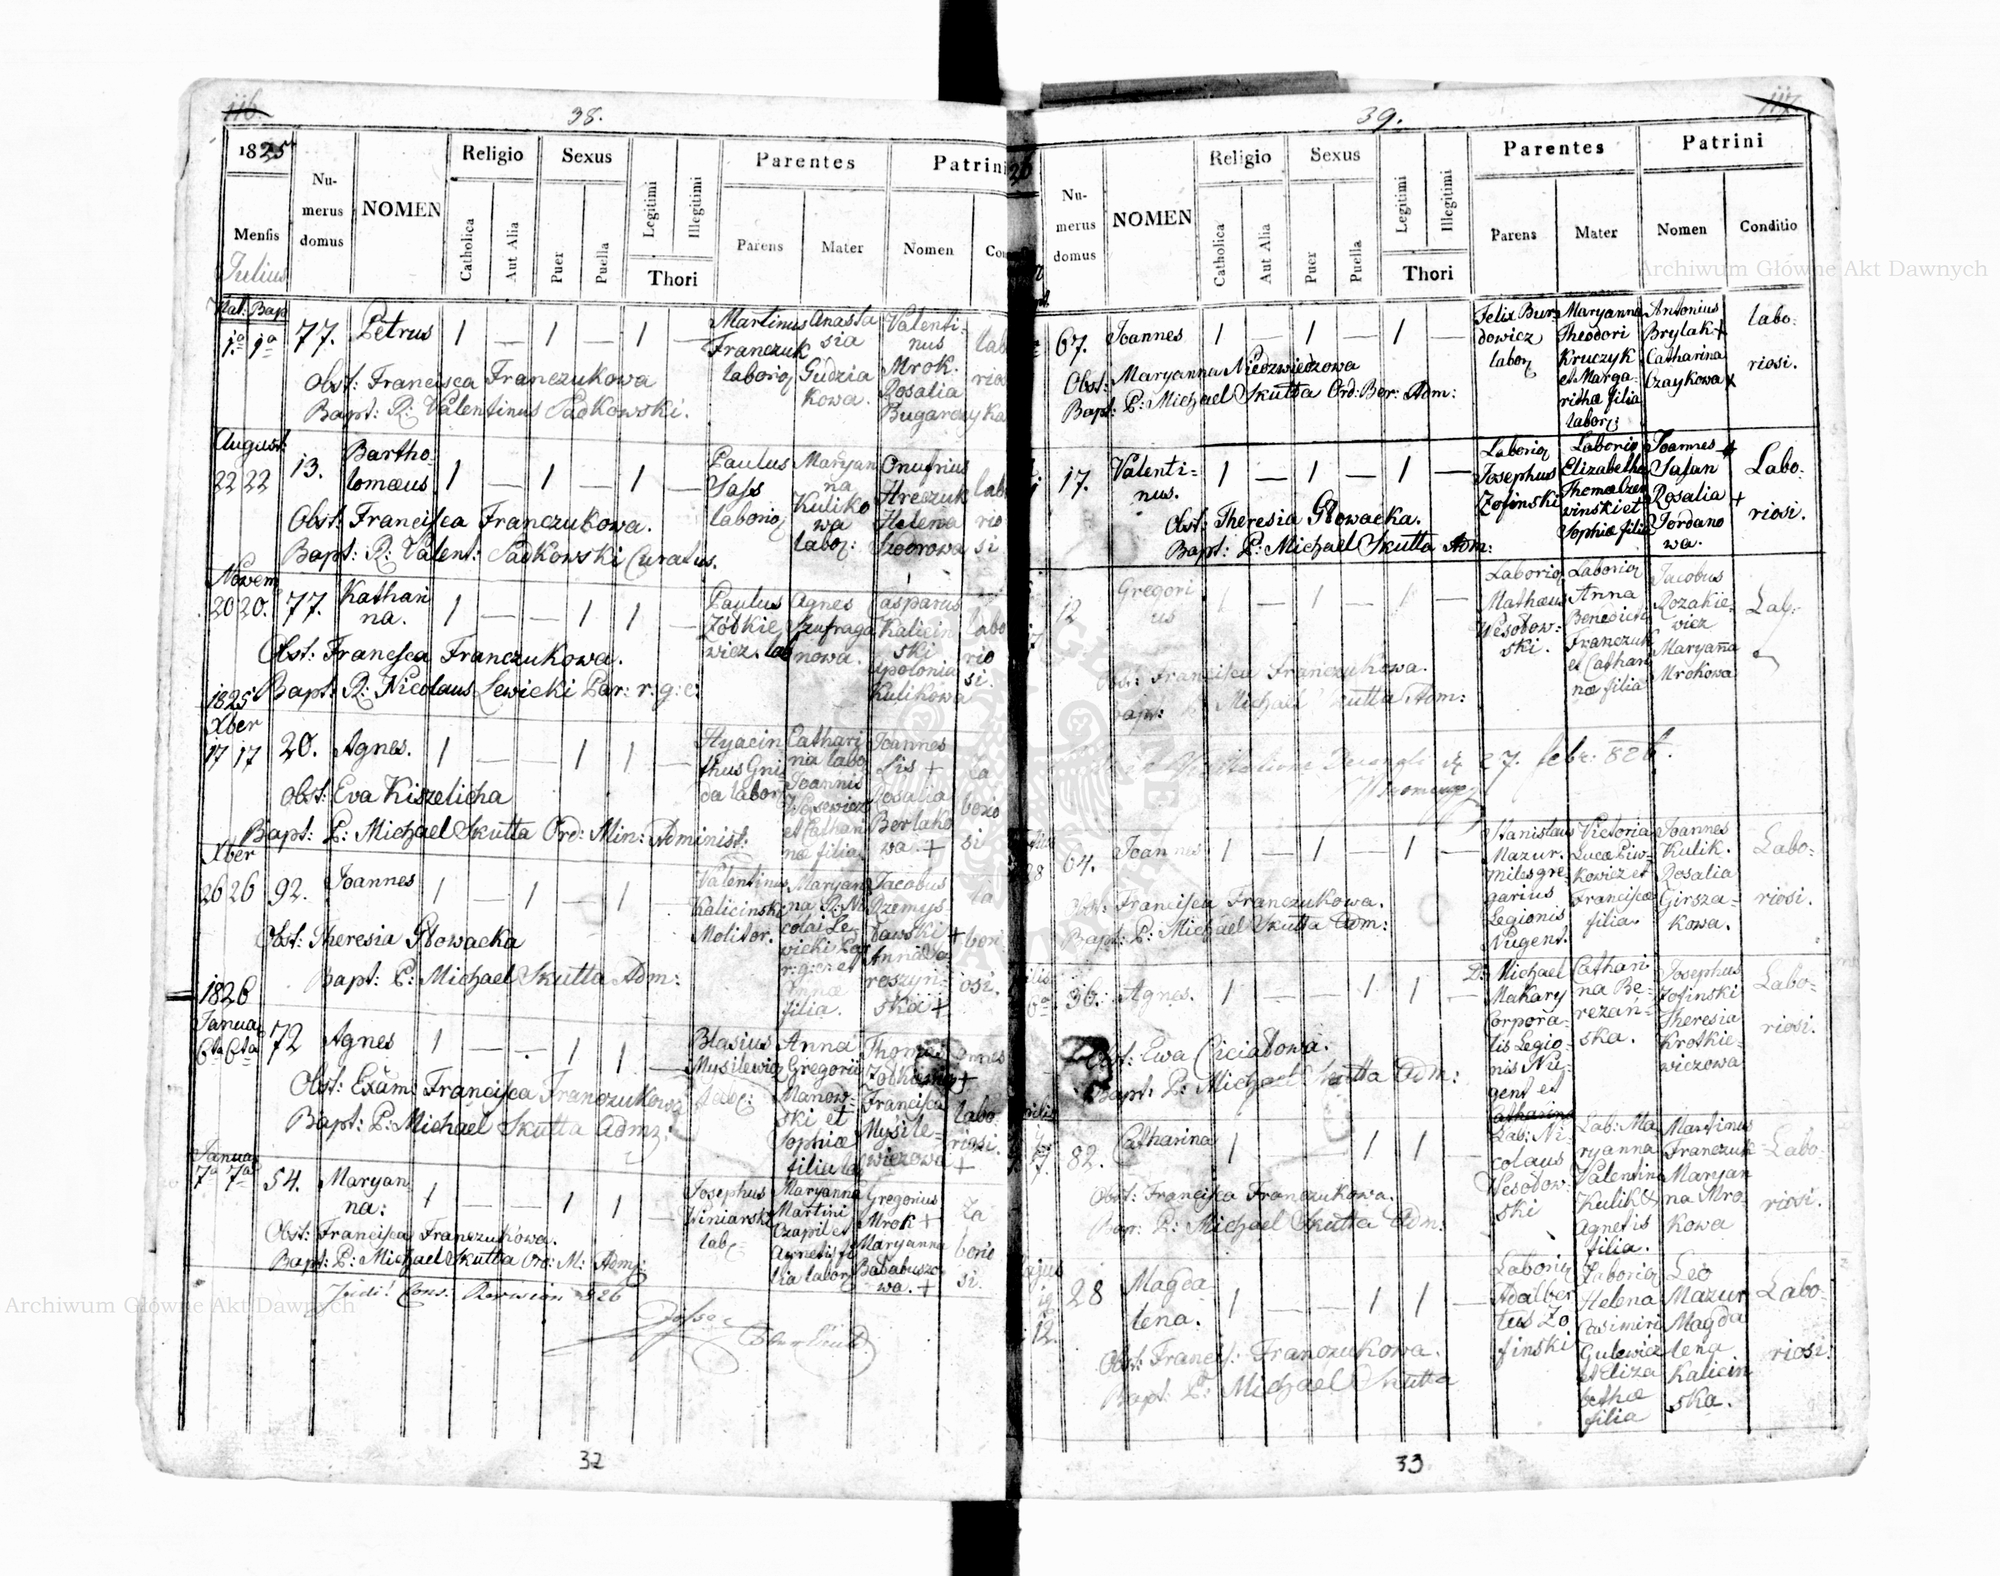 116.
38.
1825
Numerus domus
NOMEN
Religio
Sexus
Parentes
Patrini
Mensis
Catholica
Aut Alia
Puer
Puella
Legitimi
Illegitimi
Thori
Parens
Mater
Nomen
Julius
Nat: Bap
1a 1a 77. Petrus 1 — 1 — 1 —
Martinus Franczuk laborio
Anastasia Gudziakowa.
Valentinus Mrok. Rosalia Bugarczyka
Obst: Francisca Franczukowa
Bapt: R: Valentinus Sadkowski.
August
22 22 13. Bartholomæus 1 — 1 — 1 —
Paulus Sass laborio
Maryanna Kulikowa labor:
Onufrius Hreczuk Helena Szodrowa
laboriosi
Obst: Francisca Franczukowa.
Bapt: R: Valent: Sadkowski Curatus.
Novem
20 20. 77. Katharina. 1 — — 1 1 —
Paulus Zołkiewicz. lab
Agnes Szufraganowa.
Casparus Kalicinski Apolonia Kulikowa
laboriosi.
Obst: Francisca Franczukowa.
Bapt: R: Nicolaus Lewicki Par: r: g: c:
1825
Xber
17 17 20. Agnes. 1 — — 1 1 —
Hyacinthus Gnida labor
Catharina labo Joannis et Catharinæ filia
Joannes Lis + Rosalia Berlakowa. +
laboriosi
Obst: Eva Kiszelicha
Bapt: P: Michael Skutta Ord: Min: Administ:
Xber
26 26 92. Joannes 1 — 1 — 1 —
Valentinus Kalicinski Molitor.
Maryanna R: Nicolai Lewicki Par r: g: c: et Annæ filia.
Jacobus Przemysławski + Anna
laboriosi.
Obst: Theresia Głowacka
Bapt: P: Michael Skutta Adm:
1826
Janua
6ta 6ta 72 Agnes 1 — — 1 1 —
Blasius Mysilewicz labo:
Anna Gregorii Manowski et Sophiæ filia
Thomas + Francisca Mysilewiczowa +
laboriosi.
Obst: Exam: Francisca Franczukowa
Bapt: P: Michael Skutta Adm:
Janua
7a 7a 54. Maryanna: 1 — — 1 1 —
Josephus Winiarski lab
Maryanna Martini Czapil et Agnetis filia labor
Gregorius Mrok + Maryanna Bababuszowa. +
laboriosi.
Obst: Francisca Franczukowa.
Bapt: P: Michael Skutta Ord: M: Adm:
826
32
39.
117.
Numerus domus
NOMEN
Religio
Sexus
Parentes
Patrini
Catholica
Aut Alia
Puer
Puella
Legitimi
Illegitimi
Thori
Parens
Mater
Nomen
Conditio
67. Joannes 1 — 1 — 1 —
Felix Burdowicz labor
Maryanna Theodori Kruczyk et Margarithæ filia labor
Antonius Brylak + Catharina Czaykowa +
laboriosi.
Obst: Maryanna Niedzwiedzowa
Bapt: P: Michael Skutta Ord: Bor: Adm:
17. Valentinus. 1 — 1 — 1 —
Laborio Josephus Zofinski
Laborio Elizabetha Thomæ et Sophiæ filia
Joannes + Sasan Rosalia + Jordanowa.
Laboriosi.
Obst: Theresia Głowacka.
Bapt: P: Michael Skutta Adm:
12 Gregorius 1 — 1 — 1 —
Laborio Mathæus Wesołowski.
Laborio Anna Benedicti Franczuk et Catharinæ filia
Jacobus Rozakiewicz Maryanna Mrokowa
Lab:
Obst: Francisca Franczukowa.
Bap: P: Michael Skutta Adm:
27. febr: 826.
64. Joannes 1 — 1 — 1 —
Stanislaus Mazur. miles gregarius Legionis Nugent.
Victoria Lucæ Piwkowicz et Franciscæ filia.
Joannes Kulik. Rosalia Girszakowa.
Laboriosi.
Obst: Francisca Franczukowa.
Bapt: P: Michael Skutta Adm:
36. Agnes. 1 — — 1 1 —
Michael Makary Corporalis Legionis Nugent et
Catharina Berezańska.
Josephus Zofinski Theresia Krotkiewiczowa
Laboriosi.
Obst: Ewa Ciciałowa.
Bapt: P: Michael Skutta Adm:
82. Catharina 1 — — 1 1 —
Lab: Nicolaus Wesołowski
Lab: Maryanna Valentina Kulik & Agnetis filia.
Martinus Franczuk Maryanna Mrokowa
Laboriosi.
Obst: Francisca Franczukowa.
Bap: P: Michael Skutta Adm:
12. 28 Magdalena. 1 — — 1 1 —
Laborio Adalbertus Zofinski
Laborio Helena Casimiri Gulewicz et Elizabethæ filia
Leo Mazur Magdalena Kalicinska.
Laboriosi.
Obst: Francis: Franczukowa.
Bapt: P: Michael Skutta
33
Archiwum Główne Akt Dawnych
Archiwum Główne Akt Dawnych